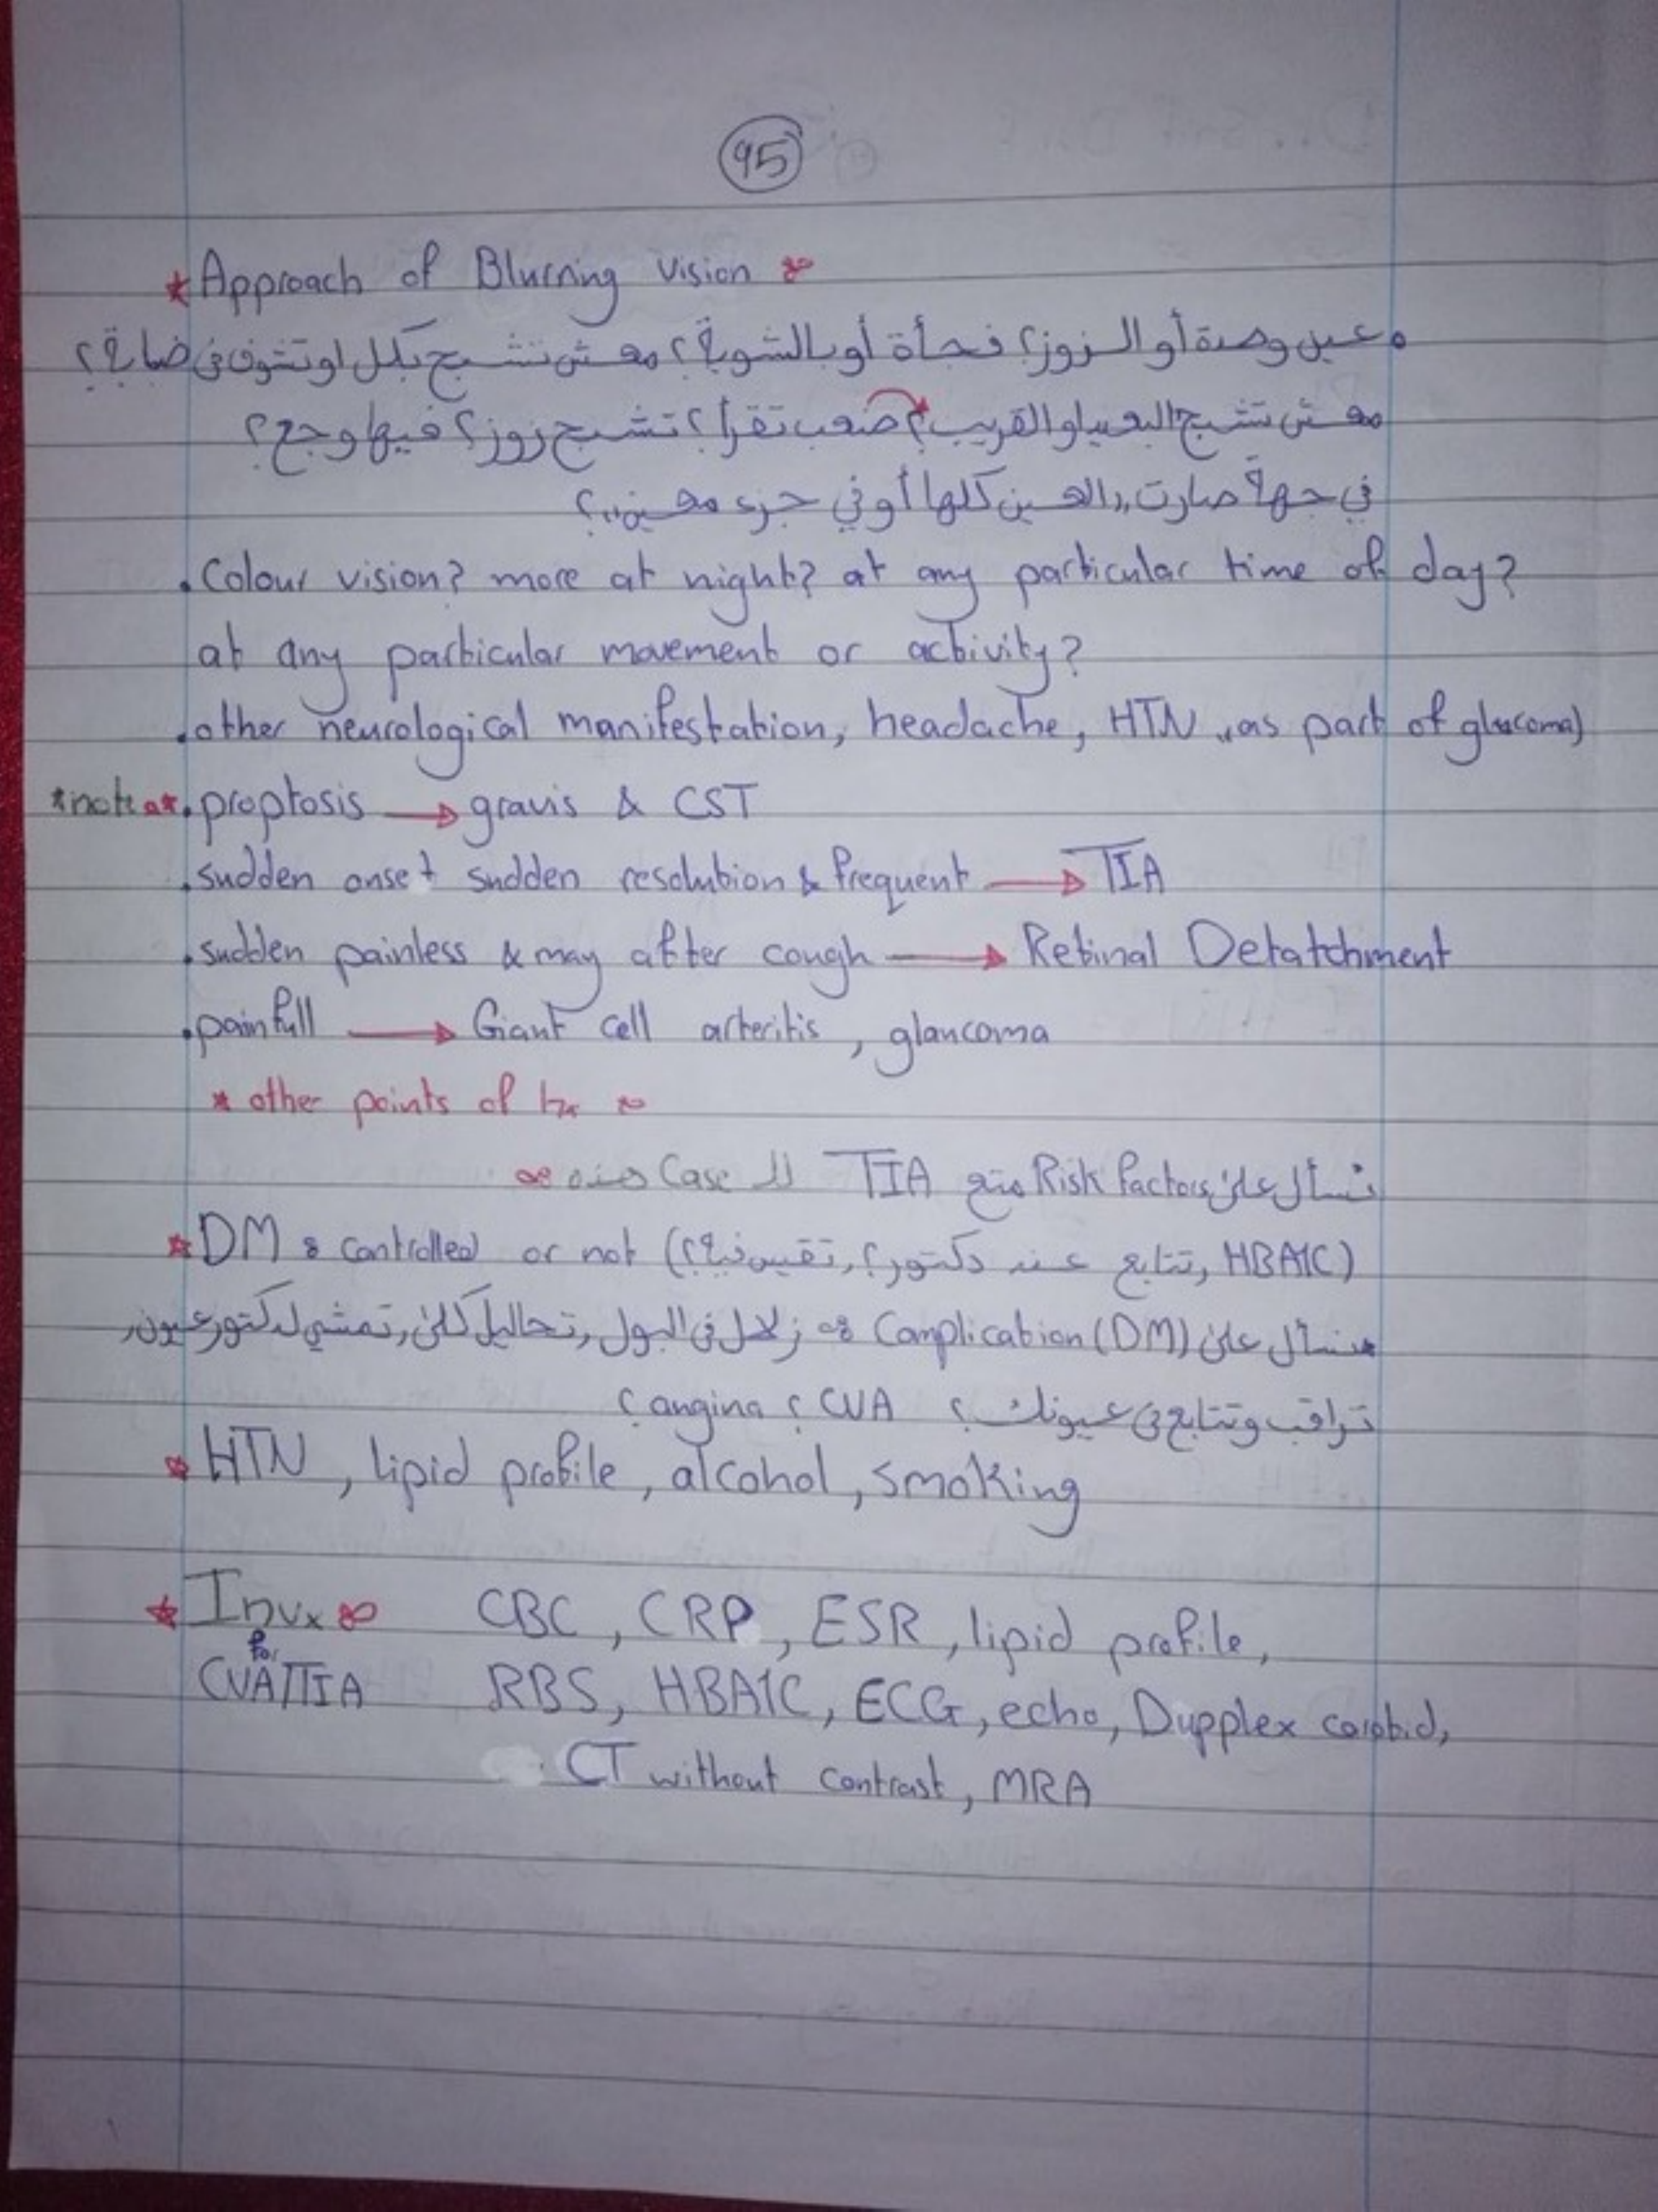 95
* Approach of Blurring vision :-
• عين وحدة أو الزوز؟ فجأة أو بالشوية؟ معش تشبح بكل او تشوف في ضبابة؟
معش تشبح البعيد او القريب؟ صعب تقرأ؟ تشبح زوز؟ فيها وجع؟
في جهة صارت "العين كلها أو في جزء معين"؟
. Colour vision? more at night? at any particular time of day?
at any particular movement or activity?
. other neurological manifestation, headache, HTN "as part of glucoma)
*note* . proptosis → gravis & CST
. sudden onset sudden resolution & frequent → TIA
. sudden painless & may after cough → Retinal Detatchment
. painfull → Giant cell arteritis, glaucoma
* other points of hx :-
نسأل على Risk factors متع TIA لل Case هنه :-
* DM : controlled or not (HBA1C, تتابع عند دكتور؟, تقيس فيه؟)
هنسأل على Complication (DM) :- زلال في البول, تحاليل كلى, تمشي لدكتور عيون,
تراقب وتتابع في عيونك؟ CVA؟ angina؟
* HTN, lipid profile, alcohol, smoking
* Invx :- CBC, CRP, ESR, lipid profile,
for
CVA/TIA RBS, HBA1C, ECG, echo, Dupplex carotid,
CT without contrast, MRA